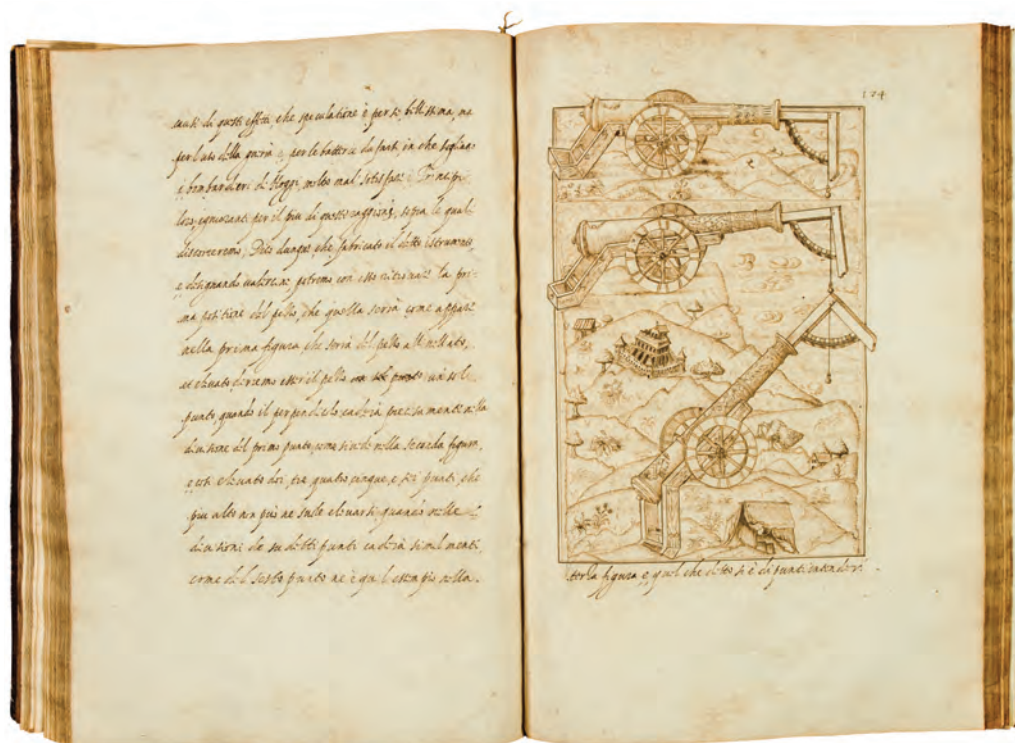 di questi effetti, che speculatione è per se bellissima, ma
per l'uso della guerra e per le batterie da farsi, in che sogliono
i bombardieri di Hoggi molto mal sotisfare i Principi
loro, ignoranti per il più di queste raggioni, sopra le quali
discorreremo, Dico dunque, che fabricato il detto istrumento
potremo con esso ritrovare la pri-
ma positione del pezzo, che quella sarà come appare
nella prima figura, che sarà del pezzo all
et elevato diremo esser il pezzo un sol
punto quando il perpendicolo caderà precisamente nella
divisione del primo punto, come si vede nella seconda figura,
e così elevato doi, tre quatro cinque, e sei punti, che
piu alto non può ne suole elevarsi, quando nelle
divisioni de su detti punti caderà similmente,
come del sesto punto ne è qui l'essempio nella.
174
terza figura e quel che detto si è di punti intendesi.